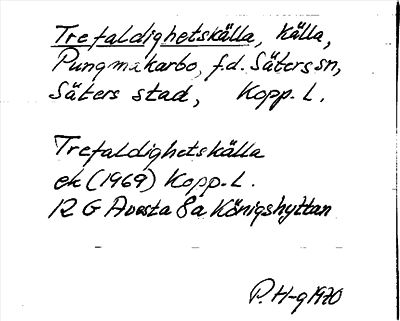 Trefaldighetskälla, Källa,
Pungmakarbo, f.d. Säters sn,
Säters stad, Kopp. L.
Trefaldighetskälla
ek (1969) Kopp. L.
12 G Avesta 8a Königshyttan
P. H-g 1970